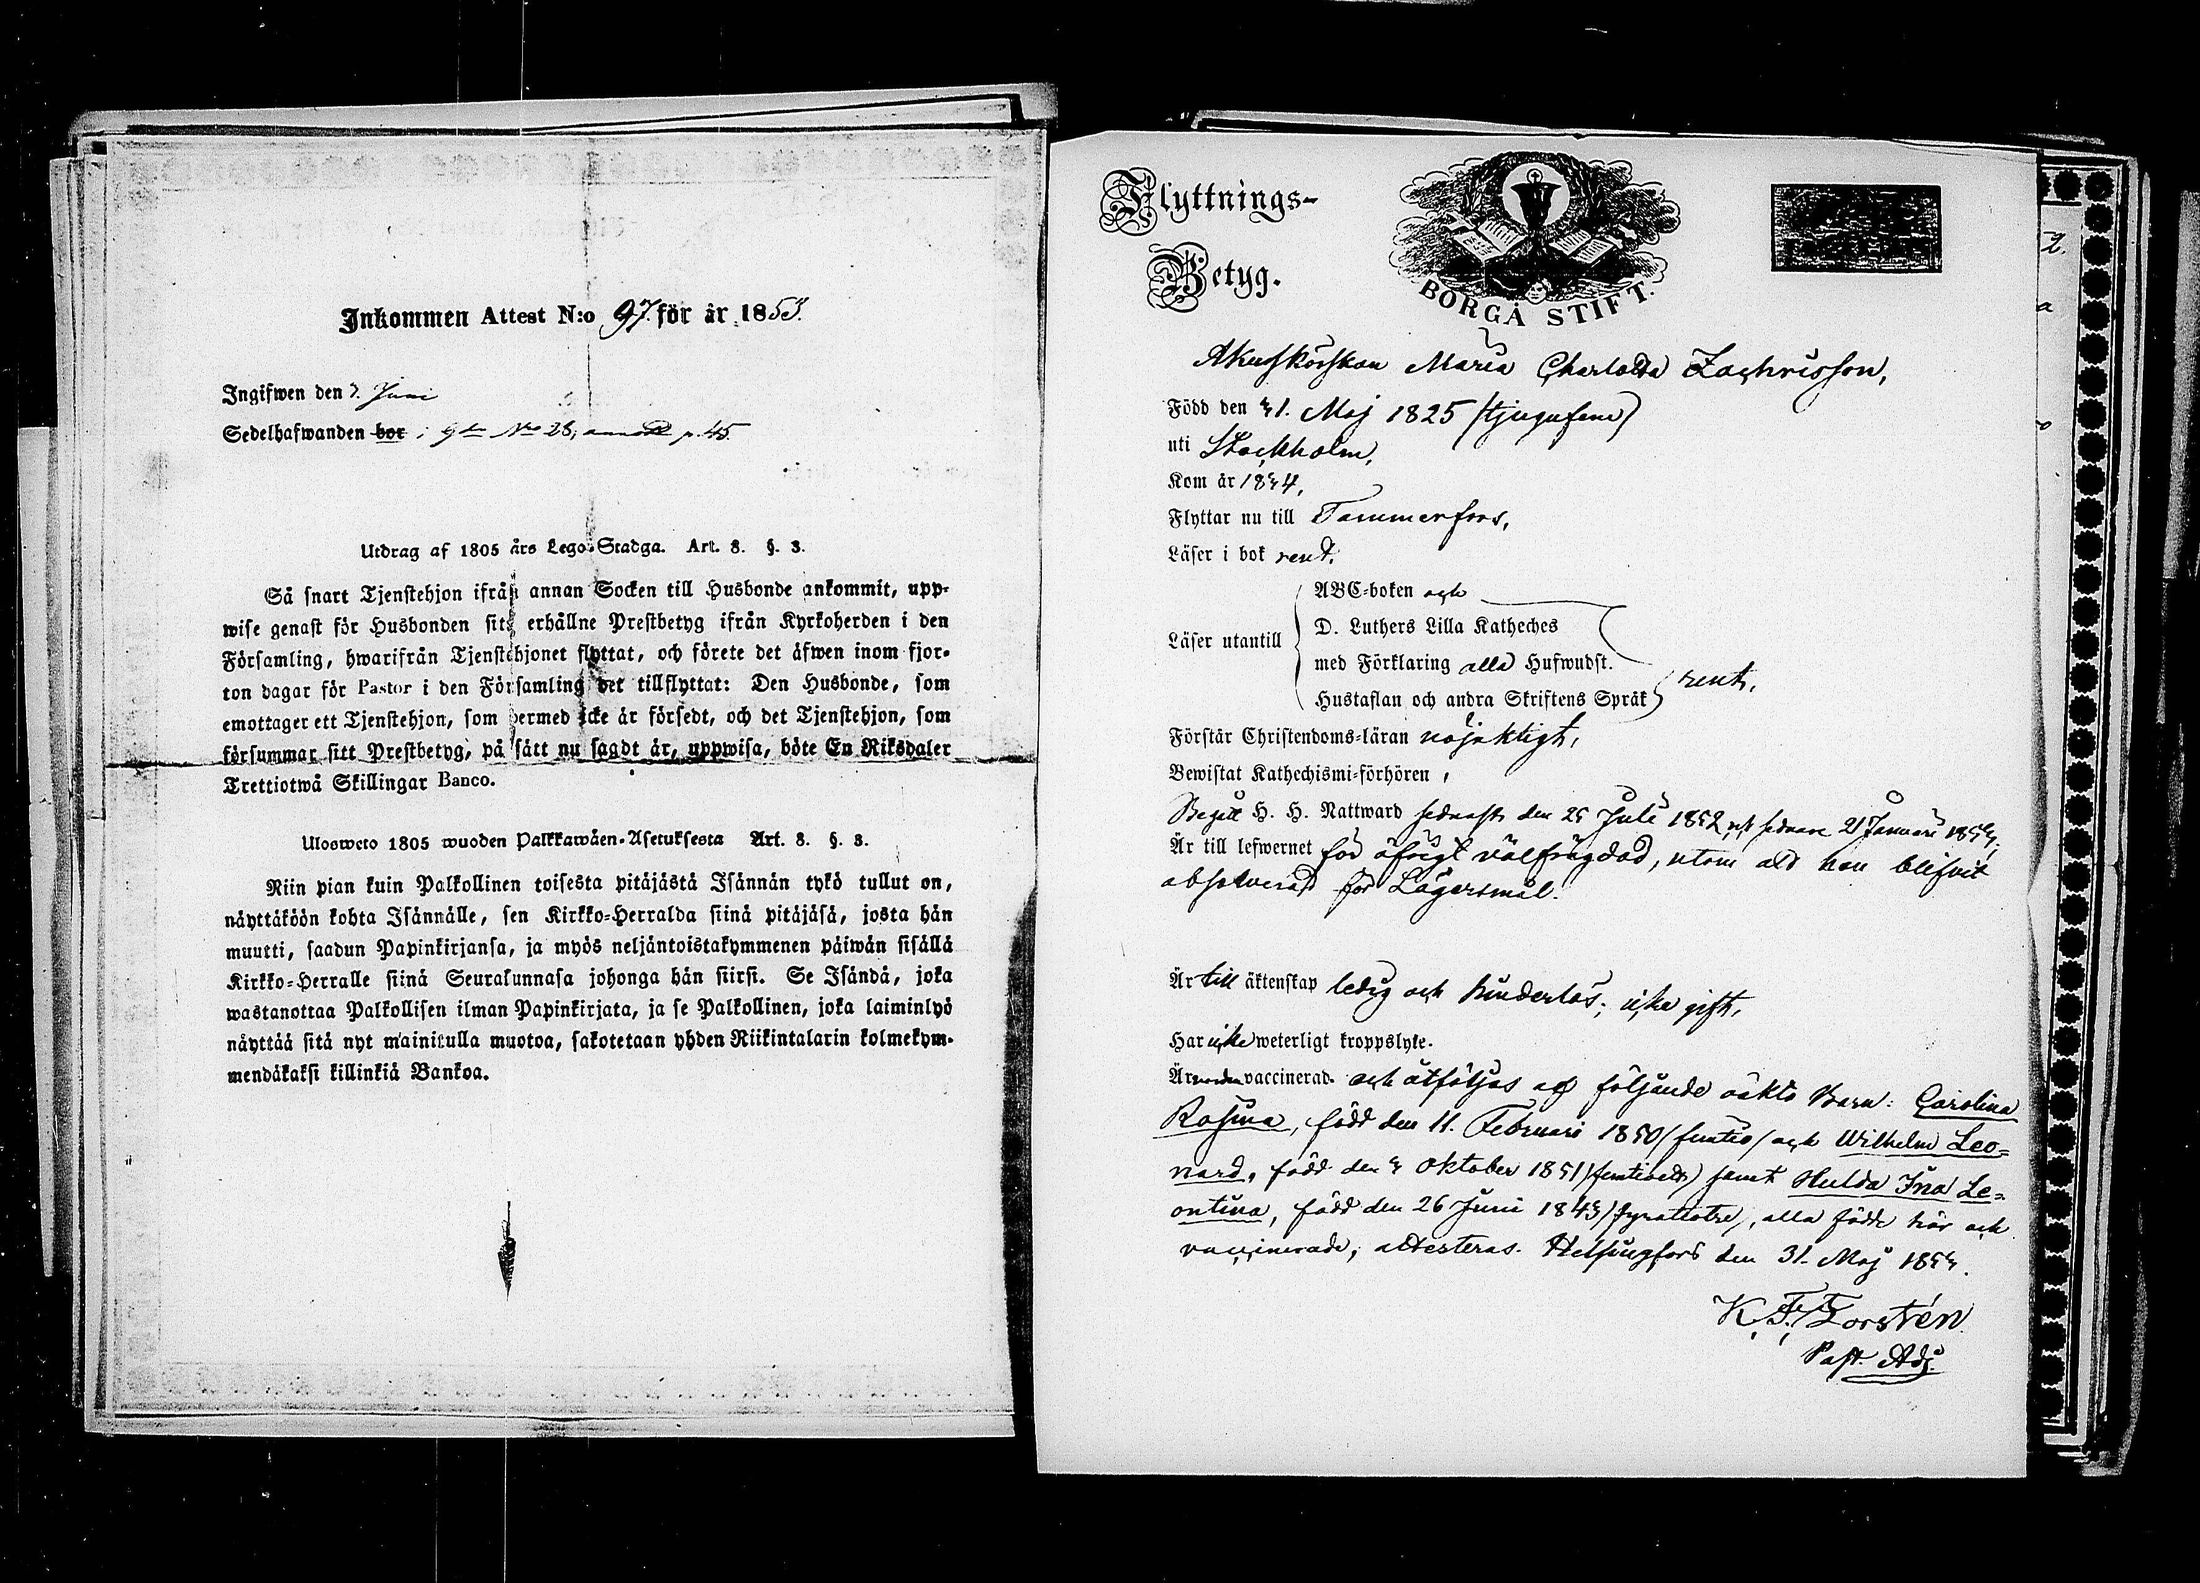 Inkommen Attest N:o 97. för år 1853.
Ingifwen den 7. Juni
Sedelhafwanden bor i gdn No 28, p. 45.
Utdrag af 1805 års Lego-Stadga. Art. 8. §. 3.
Så snart Tjenstehjon ifrån annan Socken till Husbonde ankommit, upp-
wise genast för Husbonden sitt erhållne Prestbetyg ifrån Kyrkoherden i den
Församling, hwarifrån Tjenstehjonet flyttat, och förete det äfwen inom fjor-
ton dagar för Pastor i den Församling det tillflyttat: Den Husbonde, som
emottager ett Tjenstehjon, som dermed icke är försedt, och det Tjenstehjon, som
försummar sitt Prestbetyg, på sätt nu sagdt är, uppwisa, böte En Riksdaler
Trettiotwå Skillingar Banco.
Ulosweto 1805 wuoden Palkkawäen-Asetuksesta Art. 8. §. 3.
Niin pian kuin Palkollinen toisesta pitäjästä Isännän tykö tullut on,
näyttäköön kohta Isännälle, sen Kirkko-Herralda siinä pitäjäsä, josta hän
muutti, saadun Papinkirjansa, ja myös neljäntoistakymmenen päiwän sisällä
Kirkko-Herralle siinä Seurakunnasa johonga hän siirsi. Se Isändä, joka
wastanottaa Palkollisen ilman Papinkirjata, ja se Palkollinen, joka laiminlyö
näyttää sitä nyt mainitulla muotoa, sakotetaan yhden Riikintalarin kolmekym-
mendäkaksi killinkiä Bankoa.
Flyttnings-
Betyg.
BORGÅ STIFT.
Maria Charlotta Zachrisson,
Född den 31. Maj 1825 (tjugufem)
uti Stockholm,
Kom år 1834,
Flyttar nu till Tammerfors,
Läser i bok rent.
Läser utantill
ABC-boken och
D. Luthers Lilla Katheches
med Förklaring alla Hufwudst.
Hustaflan och andra Skriftens Språk rent,
Förstår Christendoms-läran nöjaktigt,
Bewistat Kathechismi-förhören,
Begått H. H. Nattward sednast den 25 Juli 1852 sednare 21 Januari 1853,
Är till lefwernet för öfrigt välfrägdad, utom att hon blifvit
absolverad för Lägersmål.
Är till äktenskap ledig och hinderlös; icke gift,
Har icke weterligt kroppslyte.
Är vaccinerad och åtföljes af följande oäkta Barn: Carolina
Rosina, född den 11. Februari 1850 /femtio/ och Wilhelm Leo-
nard, född den 3 Oktober 1851 /femtioett/ samt Hulda Ina Le-
ontina, född den 26 Juni 1843 /fyratiotre/, alla födde här och
vaccinerade, attesteras. Helsingfors den 31. Maj 1853.
K. F. Forstén.
Past. Adj.